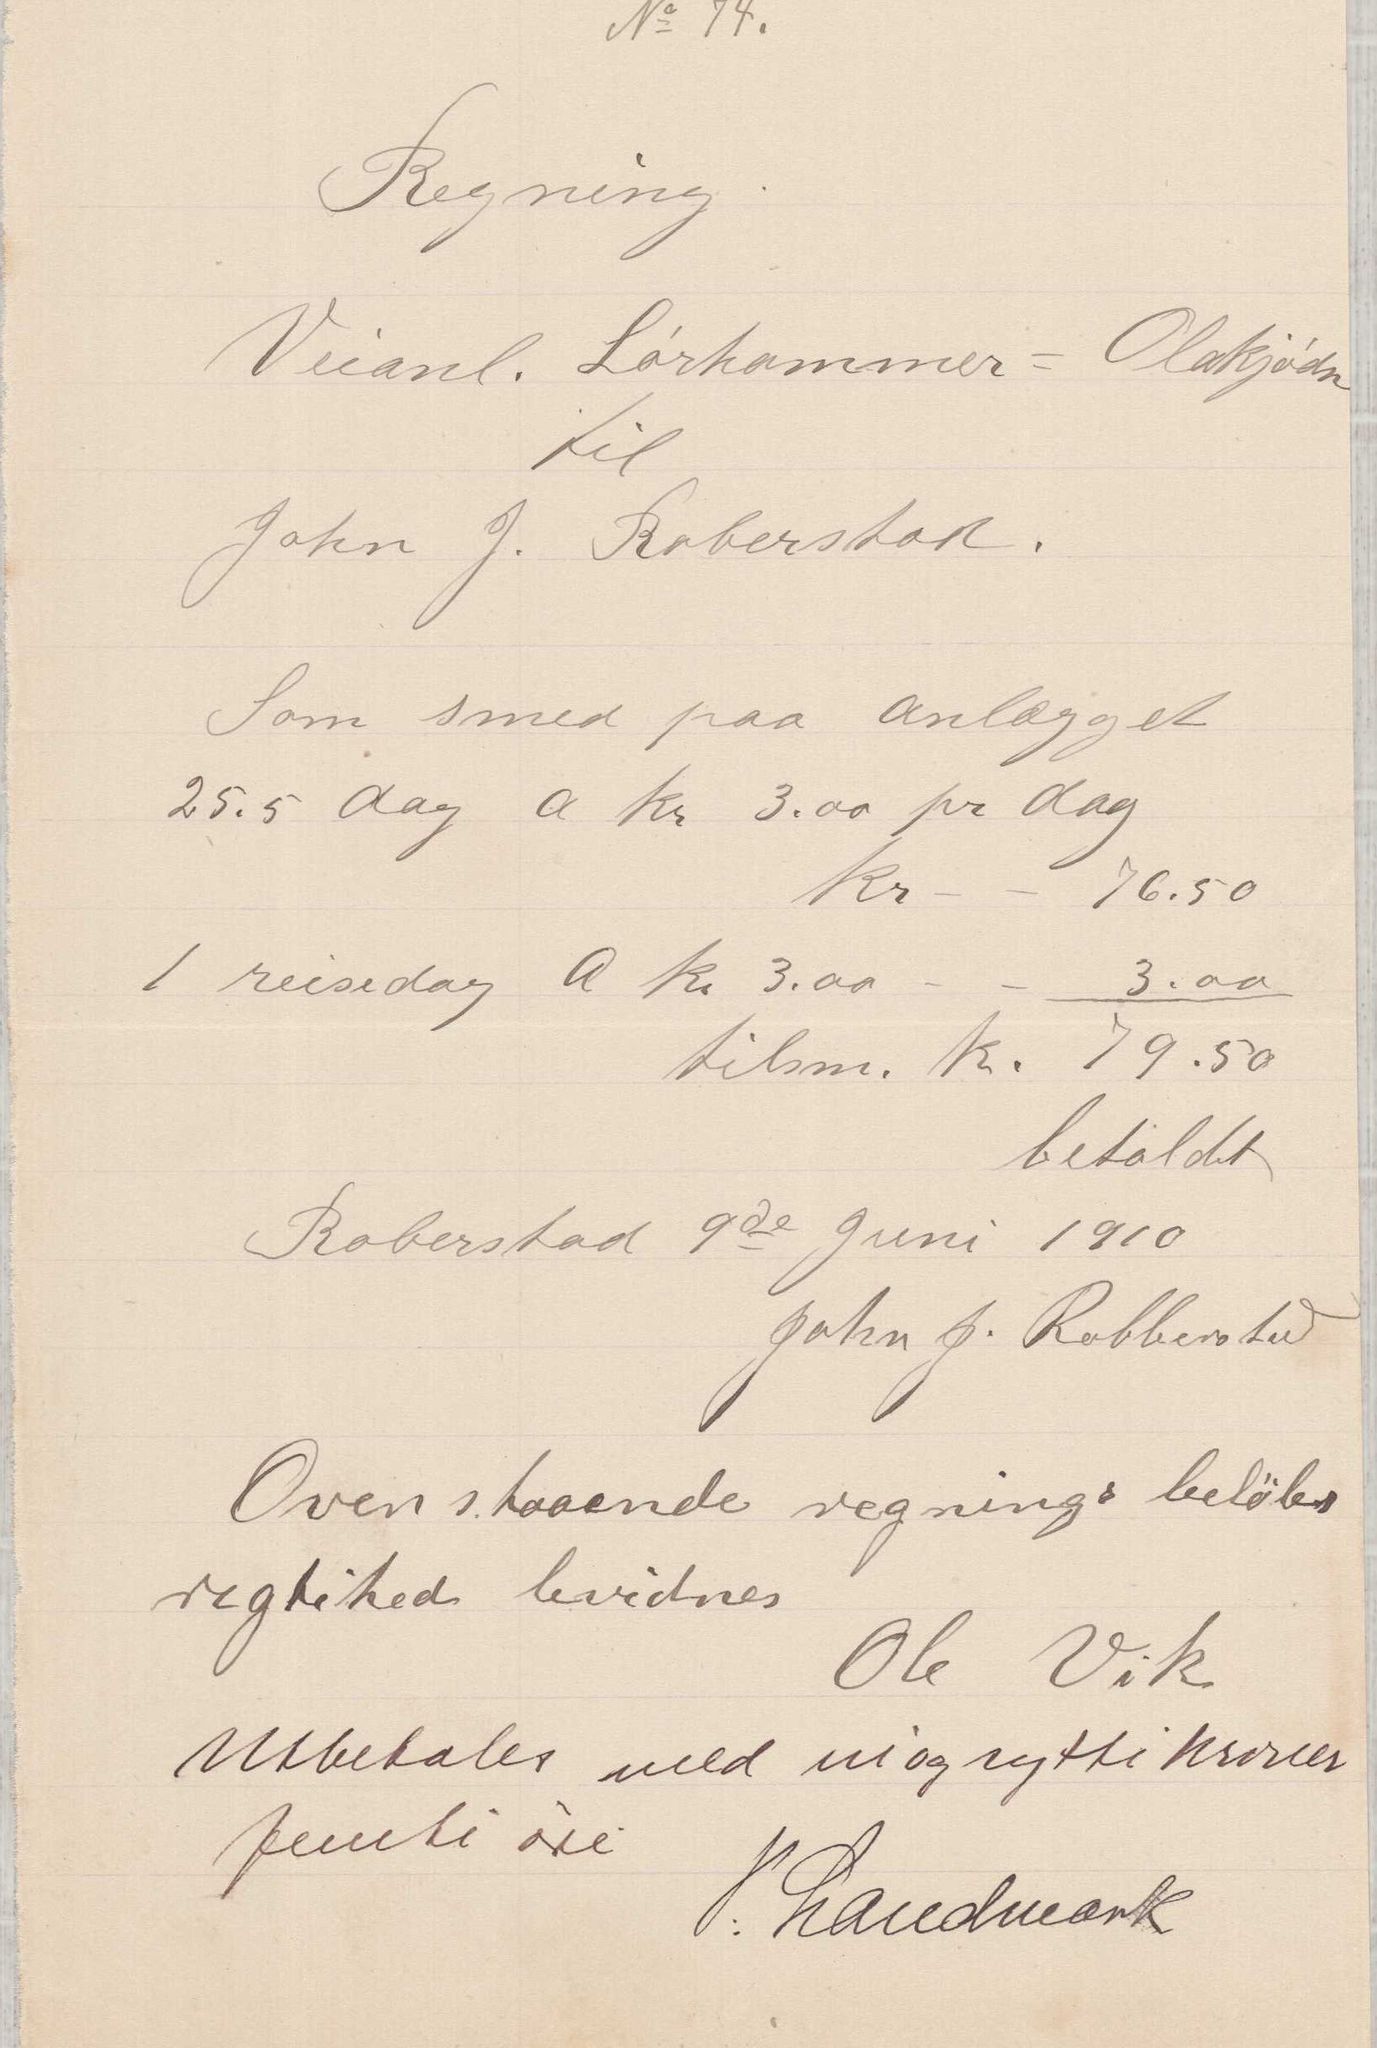 No 74.
Regning.
Veianl. Lórhammer = Olakjódn
til
John J. Roberstad.
Som smed paa anlægget
25.5 dag a kr 3.00 pr dag
kr - - 76.50
1 reisedag a kr 3.00 - - 3.00
tilsm. kr. 79.50
betaldt
Roberstad 9de Juni 1910
John J. Robberstad
Ovenstaaende regnings belöbs
regtihed bevidnes
Ole Vik
Utbetales med niogsytti kroner
femti öre
P. Landmark